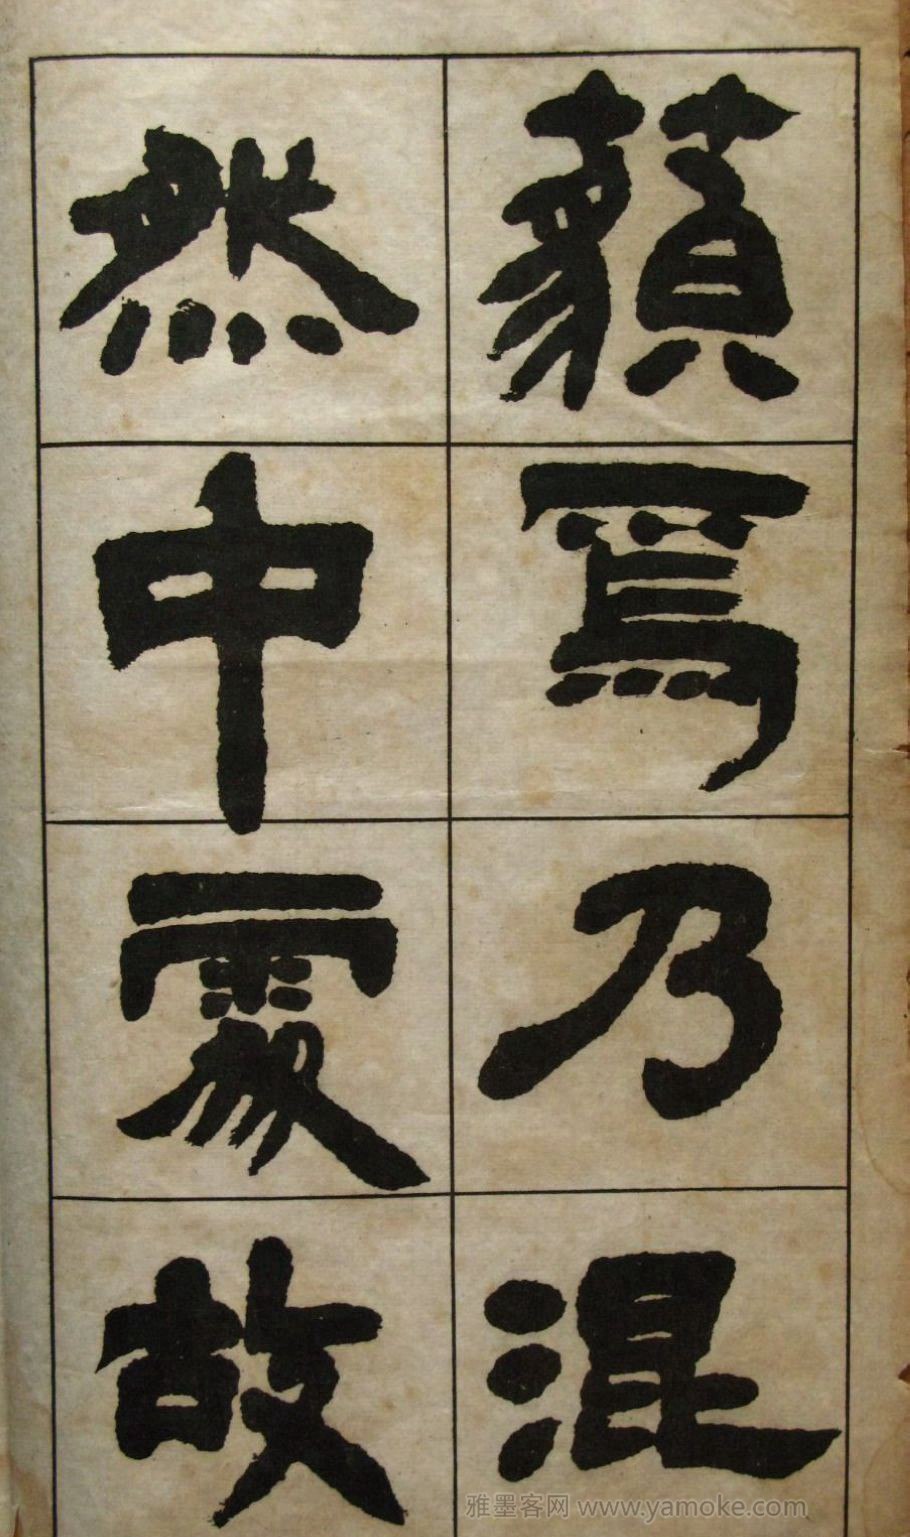 藐焉乃混
然中處故
雅墨客网 www.yamoke.com